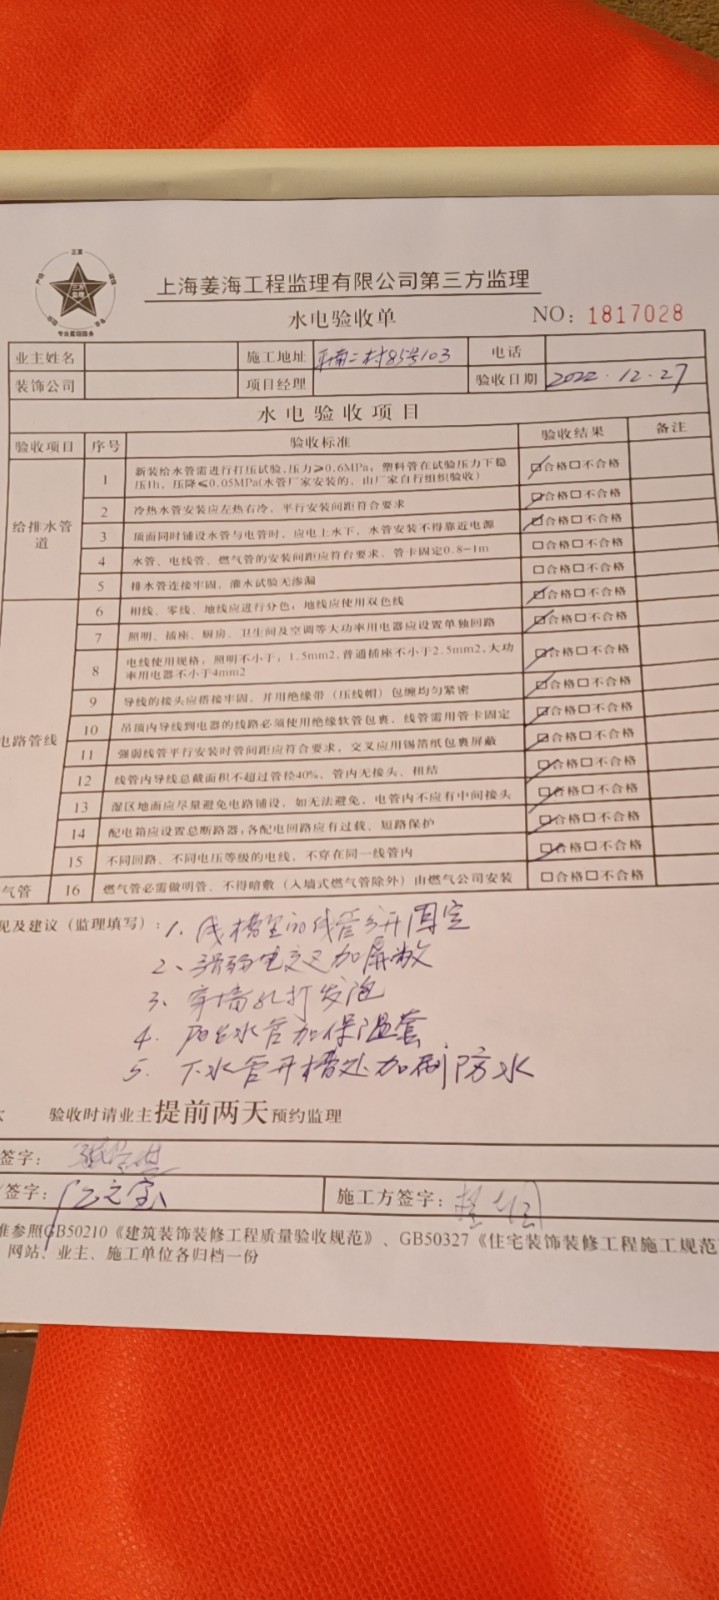 上海姜海工程监理有限公司第三方监理
水电验收单 NO：1817028
专业监理服务
业主姓名 施工地址 平南二村85号103 电话
装饰公司 项目经理 验收日期 2022.12.27
水电验收项目
验收项目 序号 验收标准 验收结果 备注
给排水管道
1 新装给水管需进行打压试验，压力≥0.6MPa；塑料管在试验压力下稳
压1h，压降≤0.05MPa(水管厂家安装的，由厂家自行组织验收) 合格 不合格
2 冷热水管安装应左热右冷，平行安装间距符合要求 合格 不合格
3 顶面同时铺设水管与电管时，应电上水下，水管安装不得靠近电源 合格 不合格
4 水管、电线管、燃气管的安装间距应符合要求，管卡固定0.8-1m 合格 不合格
5 排水管连接牢固，灌水试验无渗漏 合格 不合格
电路管线
6 相线、零线、地线应进行分色，地线应使用双色线 合格 不合格
7 照明、插座、厨房、卫生间及空调等大功率用电器应设置单独回路 合格 不合格
8 电线使用规格：照明不小于：1.5mm2，普通插座不小于2.5mm2，大功
率用电器不小于4mm2 合格 不合格
9 导线的接头应搭接牢固，并用绝缘带（压线帽）包缠均匀紧密 合格 不合格
10 吊顶内导线到电器的线路必须使用绝缘软管包裹，线管需用管卡固定 合格 不合格
11 强弱线管平行安装时管间距应符合要求，交叉应用锡箔纸包裹屏蔽 合格 不合格
12 线管内导线总截面积不超过管径40%，管内无接头、扭结 合格 不合格
13 湿区地面应尽量避免电路铺设，如无法避免，电管内不应有中间接头 合格 不合格
14 配电箱应设置总断路器，各配电回路应有过载、短路保护 合格 不合格
15 不同回路、不同电压等级的电线，不穿在同一线管内 合格 不合格
气管 16 燃气管必需做明管，不得暗敷（入墙式燃气管除外）由燃气公司安装 合格 不合格
见及建议（监理填写）：1、线槽里的线管分开固定
2、强弱电交叉加屏蔽
3、穿墙孔打发泡
4、阳台水管加保温套
5、下水管开槽处加刷防水
验收时请业主提前两天预约监理
签字：
签字： 施工方签字：
准参照GB50210《建筑装饰装修工程质量验收规范》、GB50327《住宅装饰装修工程施工规范
网站、业主、施工单位各归档一份